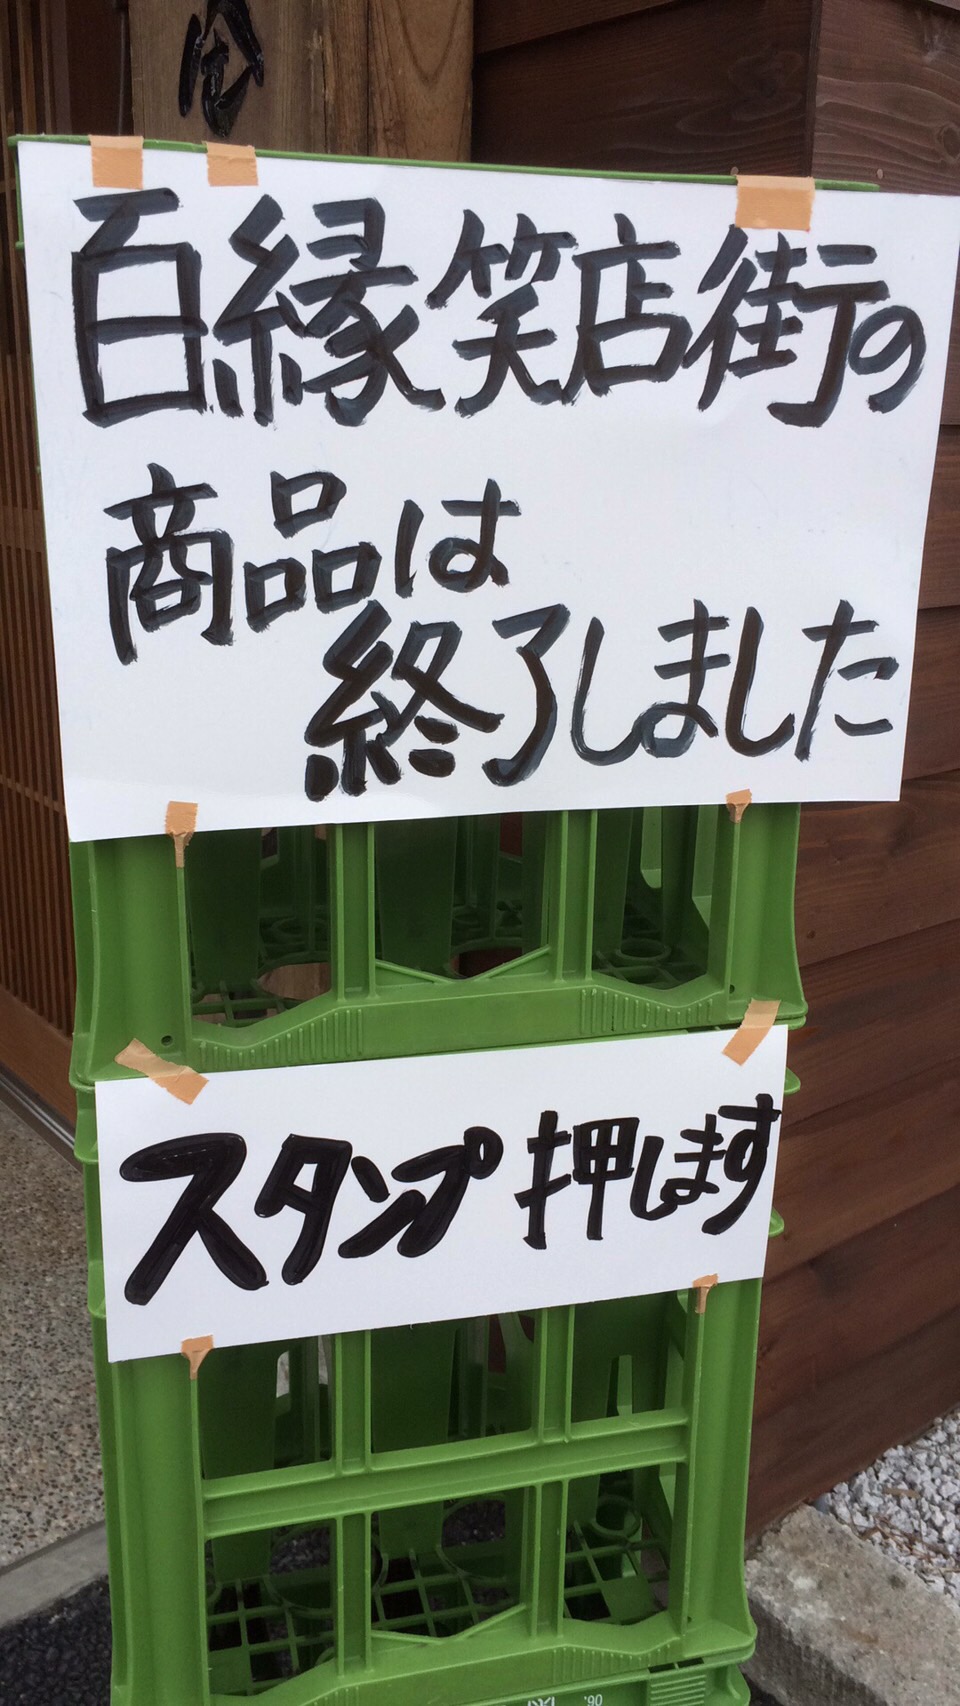 百縁笑店街の
商品は
終了しました
スタンプ押します
'90